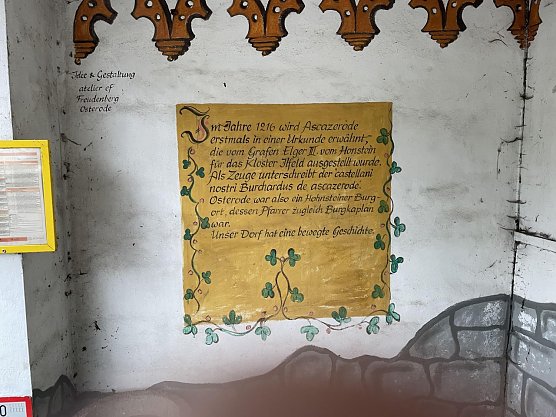 Idee & Gestaltung
atelier ef
Freudenberg
Osterode
Im Jahre 1216 wird Ascazerode
erstmals in einer Urkunde erwähnt,
die vom Grafen Elger III. vom Honstein
für das Kloster Ilfeld ausgestellt wurde.
Als Zeuge unterschreibt der castellani
nostri Burchardus de ascazerode.
Osterode war also ein Hohnsteiner Burg-
ort, dessen Pfarrer zugleich Burgkaplan
war.
Unser Dorf hat eine bewegte Geschichte.